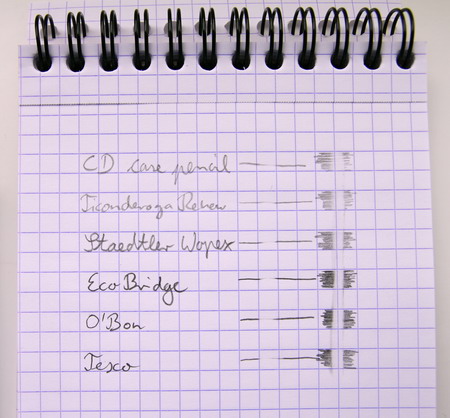 CD case pencil
Ticonderoga Renew
Staedtler Wopex
EcoBridge
O'Bon
Tesco